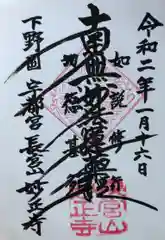 令和二年一月十六日
如説修行
南無妙法蓮華経
功徳甚
下野国 宇都宮 妙正寺
宮山
正寺